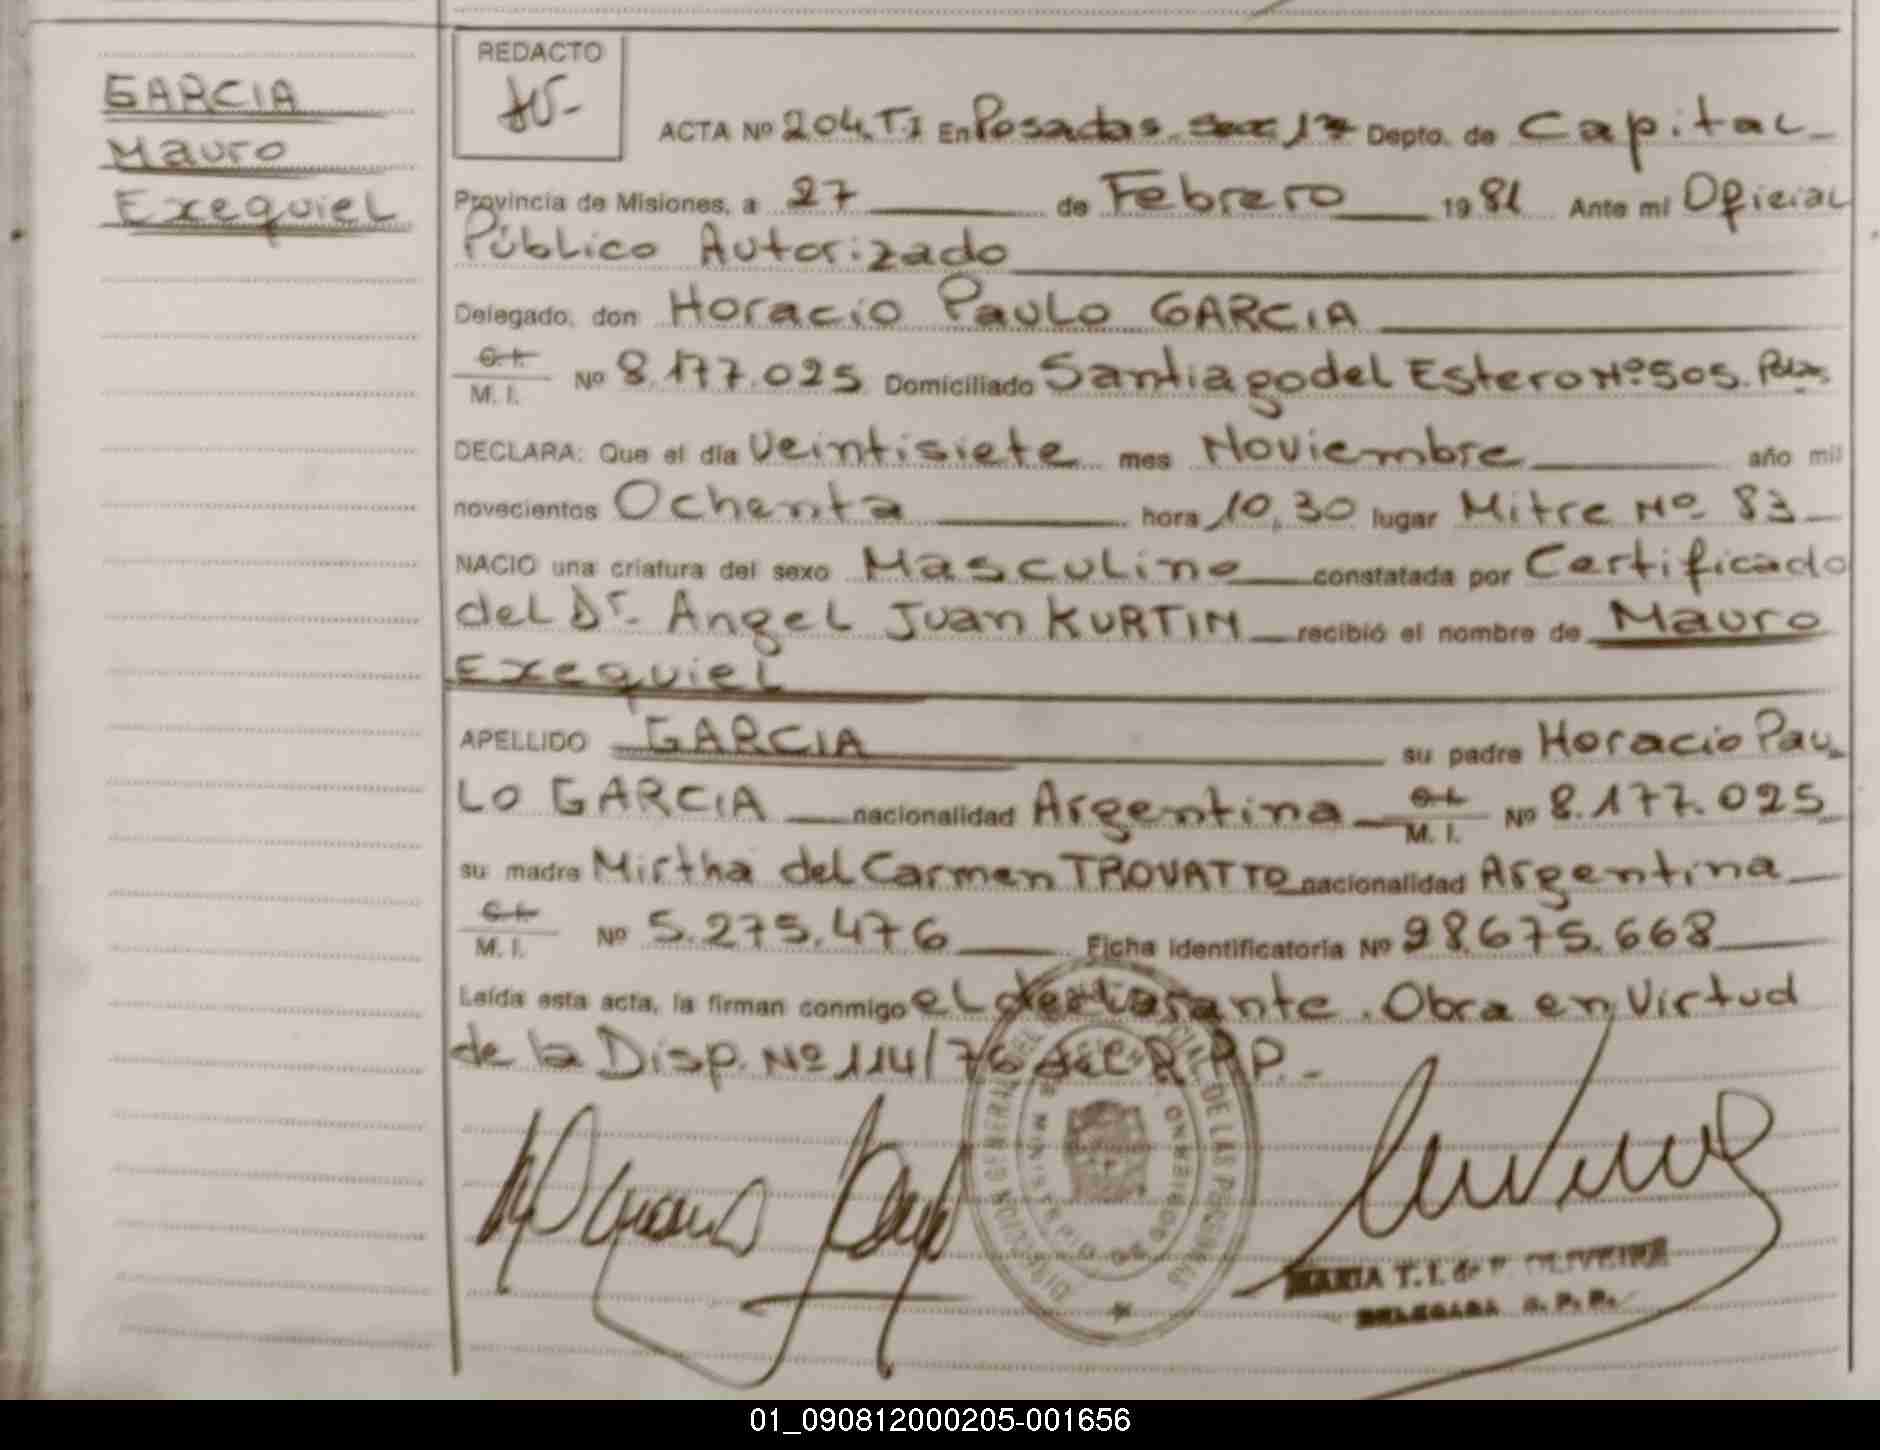 GARCIA
Mauro
Exequiel
REDACTO
ACTA Nº 204.T.I En Posadas. Secc 17 Depto. de Capital
Provincia de Misiones, a 27 de Febrero 1981 Ante mi Oficial
Público Autorizado
Delegado, don Horacio Paulo GARCIA
C.I. M.I. Nº 8.177.025 Domiciliado Santiago del Estero Nº 505. Pdas.
DECLARA: Que el día Veintisiete mes Noviembre año mil
novecientos Ochenta hora 10,30 lugar Mitre Nº 83
NACIO una criatura del sexo Masculino constatada por Certificado
del Dr. Angel Juan KURTIN recibió el nombre de Mauro
Exequiel
APELLIDO GARCIA su padre Horacio Pau
Lo GARCIA nacionalidad Argentina C.I. M.I. Nº 8.177.025
su madre Mirtha del Carmen TROVATTO nacionalidad Argentina
C.I. M.I. Nº 5.275.476 Ficha identificatoria Nº 98.675.668
Leída esta acta, la firman conmigo el declarante. Obra en Virtud
de la Disp. Nº 114/76 del R.P.P.-
MARIA T. I. de P. OLIVEIRA
DELEGADA R.P.P.
01_090812000205-001656